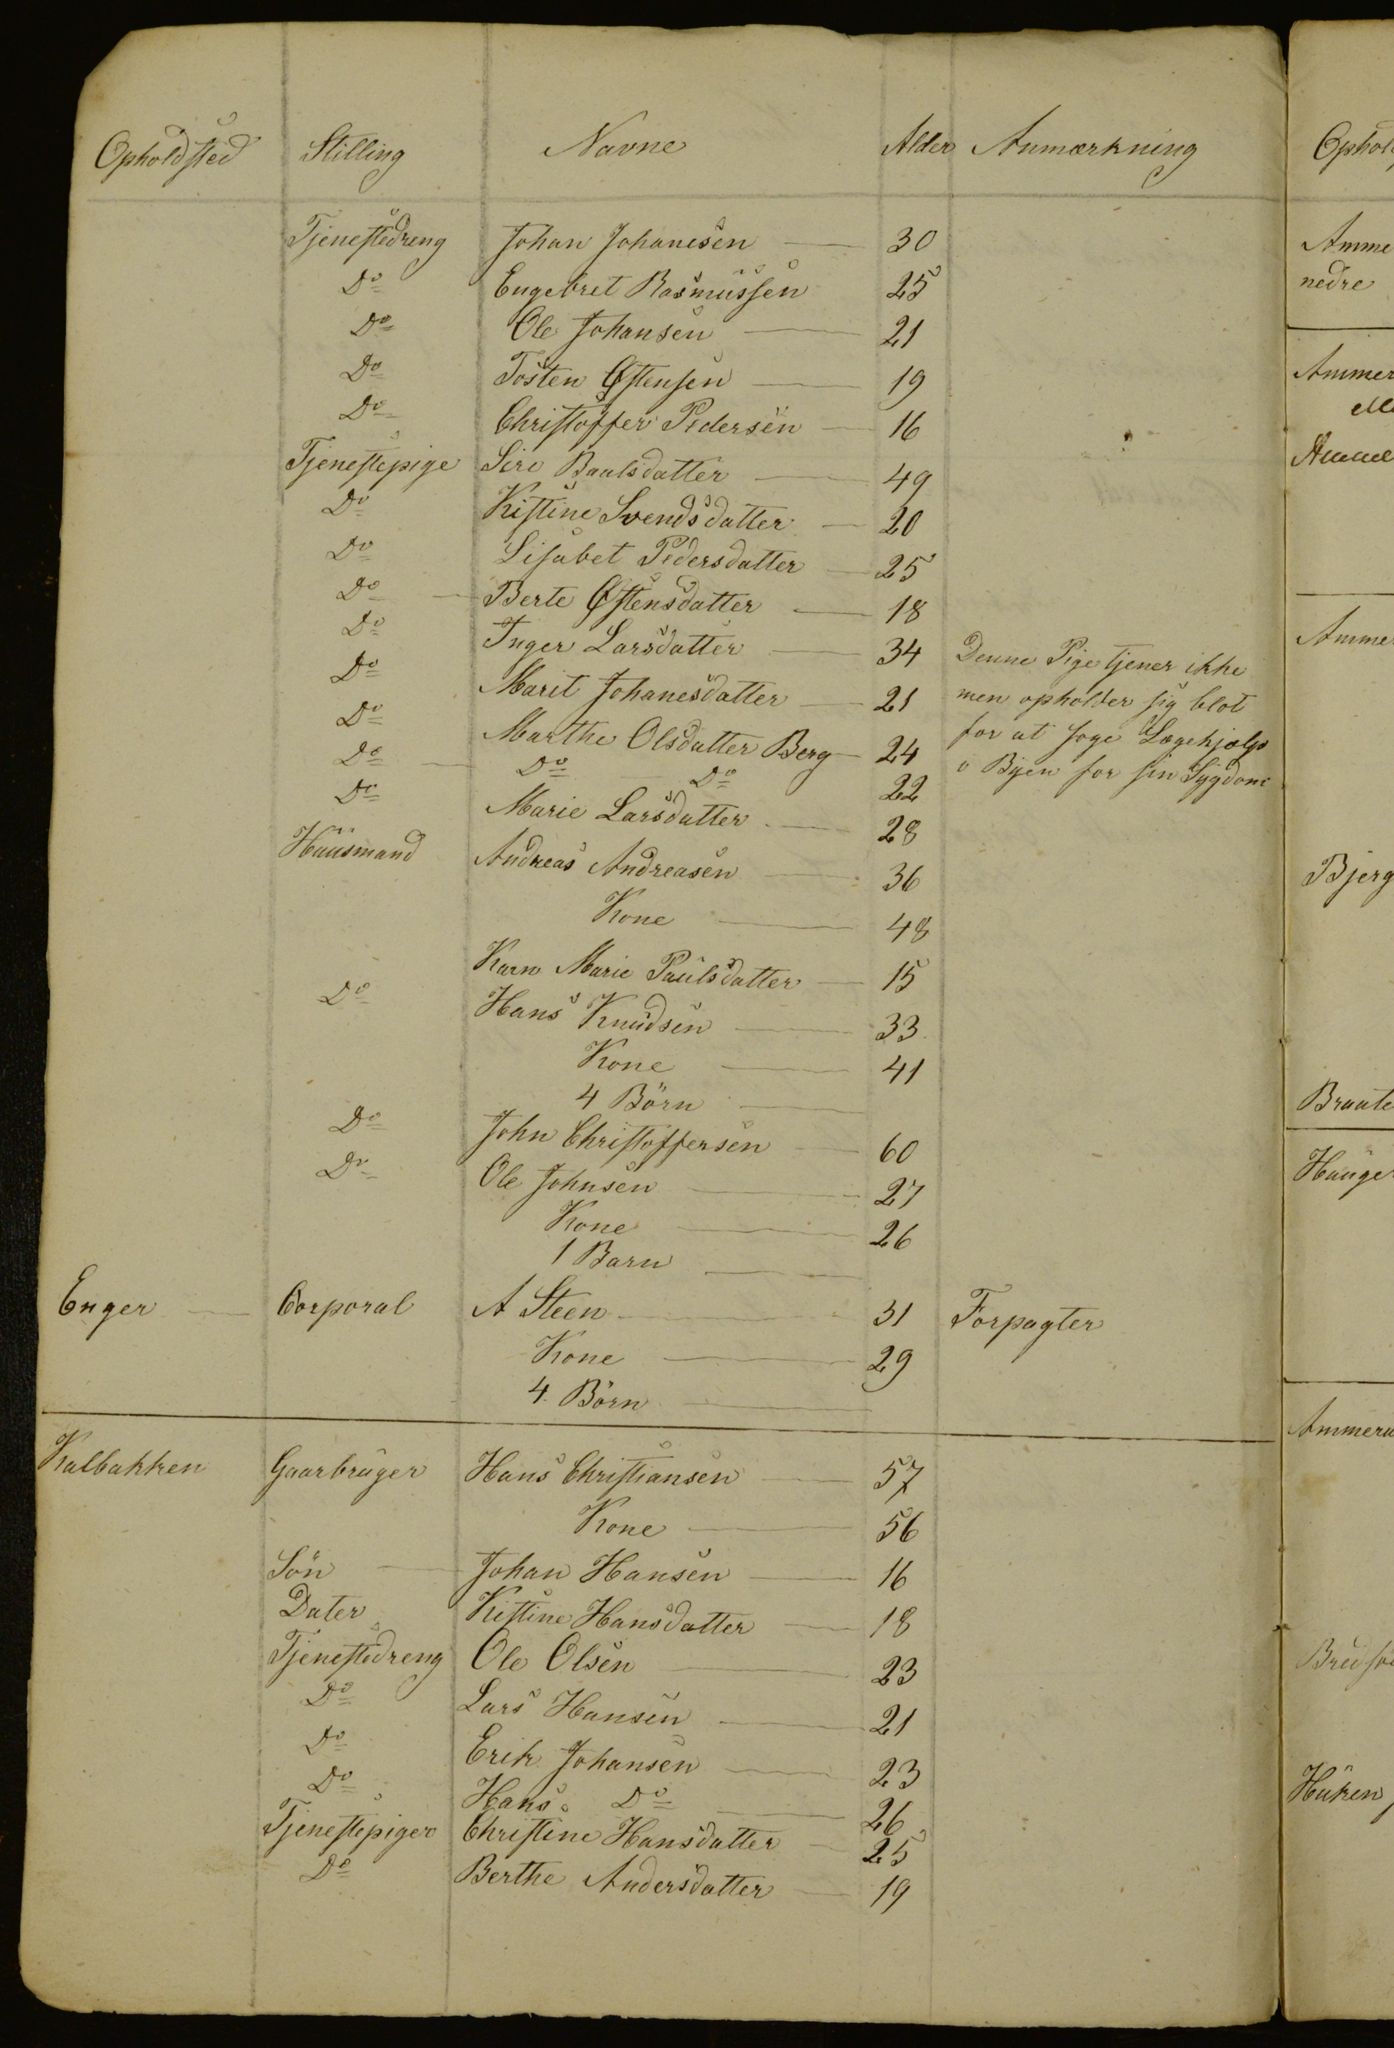 Opholdsted Stilling Navne Alder Anmærkning
Tjenestedreng Johan Johanesen 30
Do Engebret Rasmussen 25
Do Ole Johansen 21
Do Tosten Østensen 19
Do Christoffer Pedersen 16
Tjenestepige Siri Paulsdatter 49
Do Kistine Svendsdatter 20
Do Lisabet Pedersdatter 25
Do Berte Østensdatter 18
Do Inger Larsdatter 34 Denne Pige tjener ikke
Do Marit Johanesdatter 21 men opholder sig blot
Do Marthe Olsdatter Berg 24 for at søge Lægehjælp
Do Do Do 22 i Byen for sin Sygdom
Do Marie Larsdatter 28
Huusmand Andreas Andreasen 36
Kone 48
Karn Marie Paulsdatter 15
Do Hans Knudsen 33
Kone 41
4 Börn
Do John Christoffersen 60
Do Ole Johnsen 27
Kone 26
1 Barn
Enger Corporal A Steen 31 Forpagter
Kone 29
4 Börn
Kalbakken Gaarbruger Hans Christiansen 57
Kone 56
Sön Johan Hansen 16
Dater Kistine Hansdatter 18
Tjenestedreng Ole Olsen 23
Do Lars Hansen 21
Do Erik Johansen 23
Do Hans Do 26
Tjenestepiger Christine Hansdatter 25
Do Berthe Andersdatter 19
Ophold
Amme
nedre
Ammer
Amme
Bjerg
Braate
Hauge
Ammeru
Haken